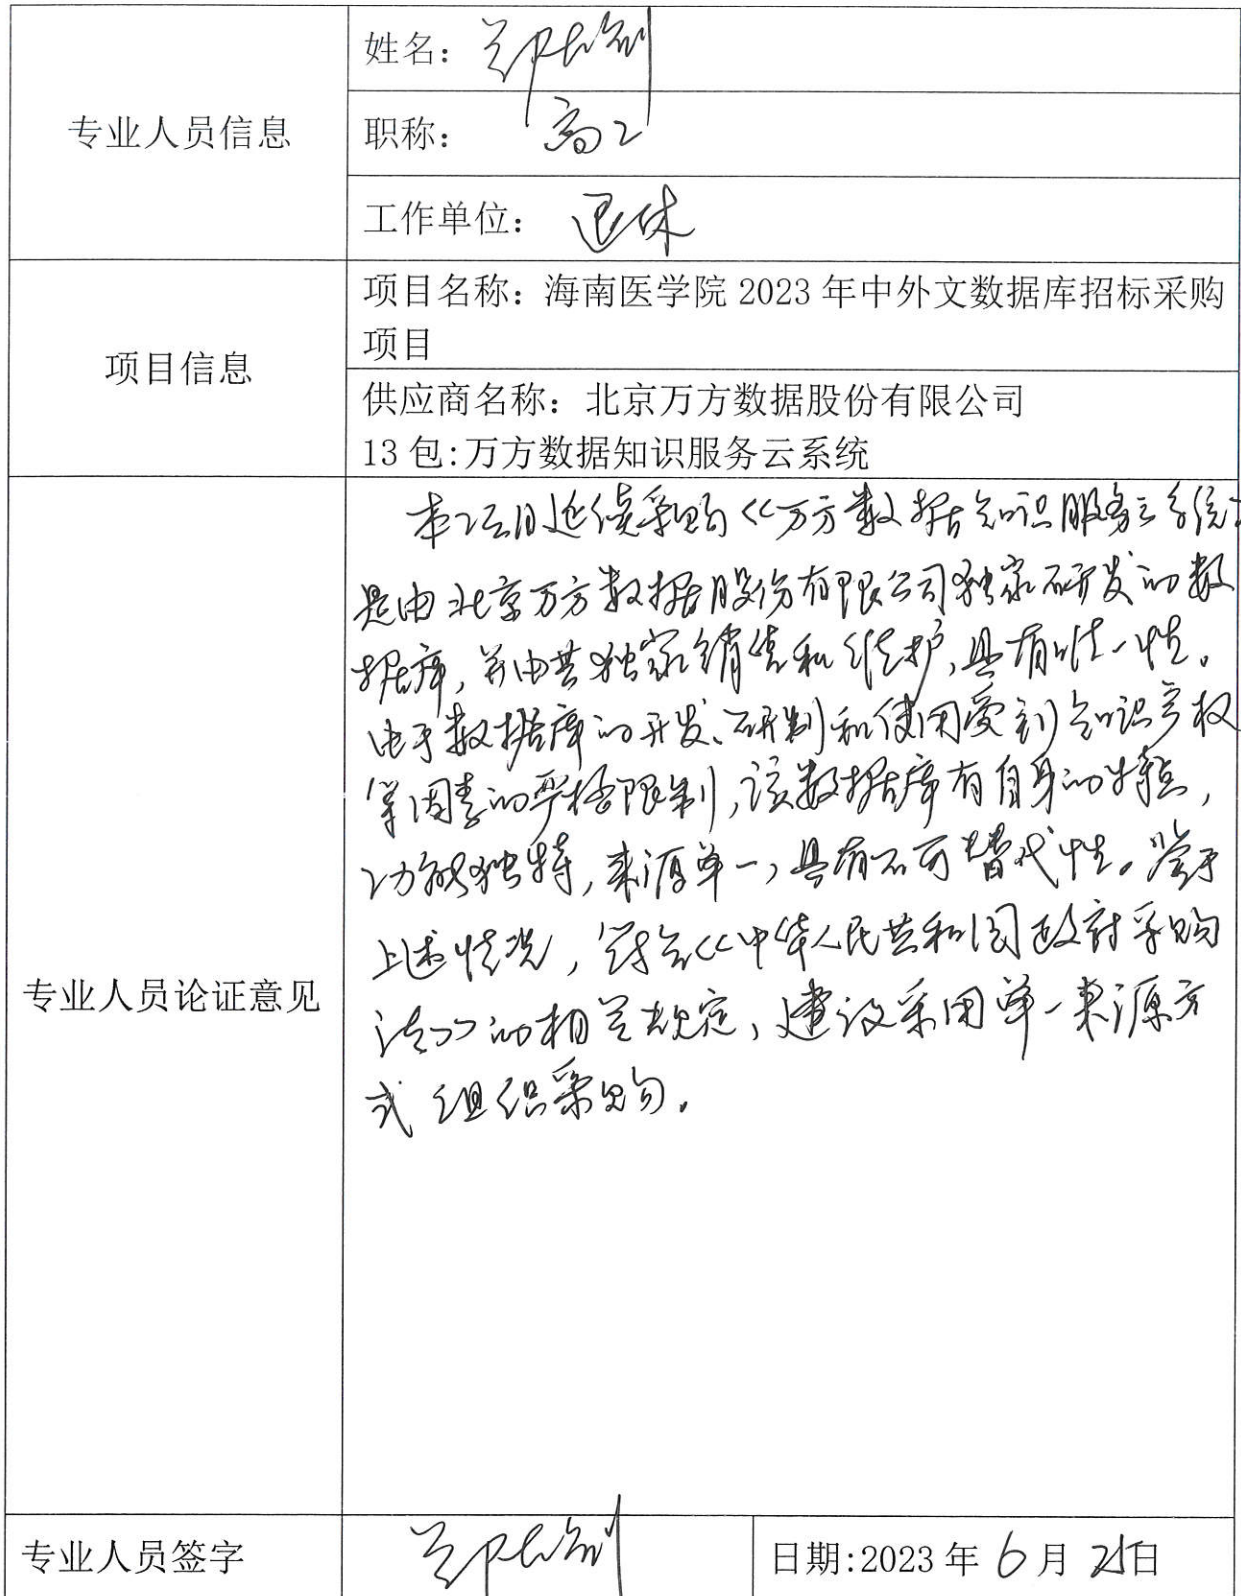 专业人员信息
姓名：郑
职称：高工
工作单位：退休
项目信息
项目名称：海南医学院 2023 年中外文数据库招标采购
项目
供应商名称：北京万方数据股份有限公司
13 包:万方数据知识服务云系统
专业人员论证意见
本项目延续采购《万方数据知识服务云系统》
是由北京万方数据股份有限公司独家研发的数
据库，并由其独家销售和维护，具有唯一性。
由于数据库的开发、研制和使用受到知识产权
等因素的严格限制，该数据库有自身的特点，
功能独特，来源单一，具有不可替代性。鉴于
上述情况，符合《中华人民共和国政府采购
法》的相关规定，建议采用单一来源方
式组织采购。
专业人员签字
郑
日期:2023 年 6 月 日